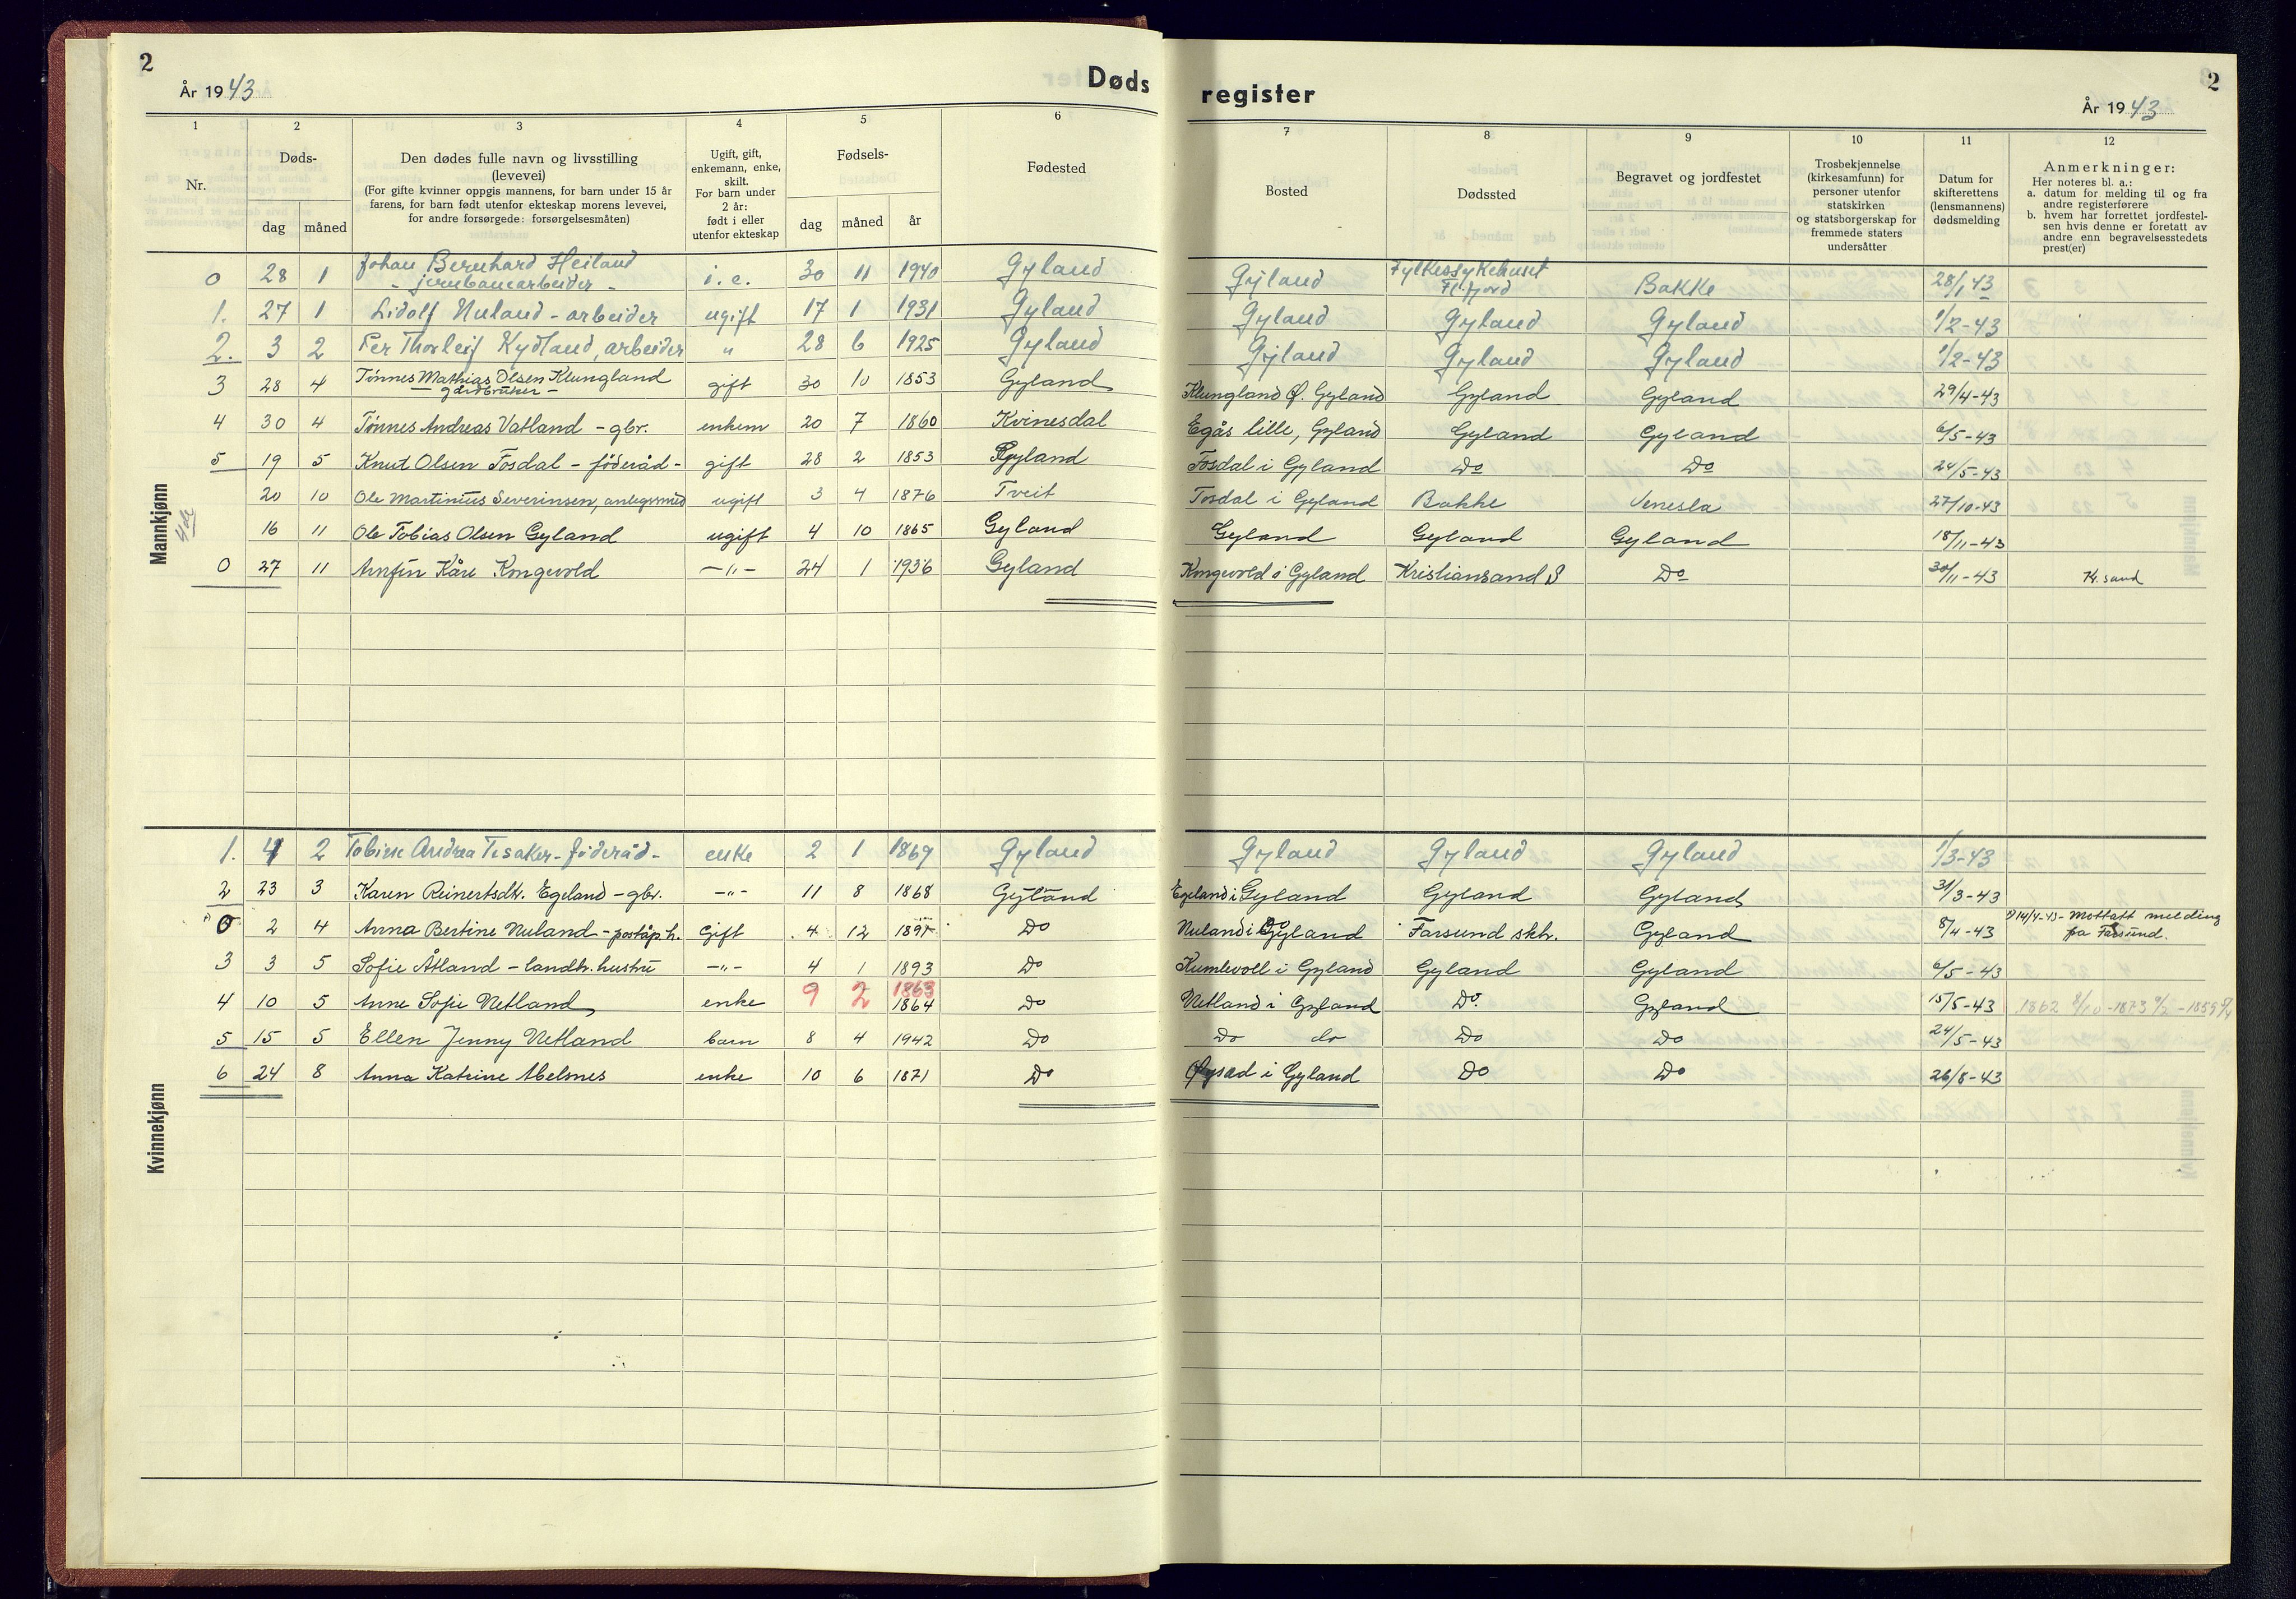 2
År 1943
Døds
register
2
År 1943
1 2 3 4 5 6 7 8 9 10 11 12
Nr.
Døds-
dag måned
Den dødes fulle navn og livsstilling
(levevei)
(For gifte kvinner oppgis mannens, for barn under 15 år
farens, for barn født utenfor ekteskap morens levevei,
for andre forsørgede: forsørgelsesmåten)
Ugift, gift,
enkemann, enke,
skilt.
For barn under
2 år:
født i eller
utenfor ekteskap
Fødsels-
dag måned år
Fødested
Bosted
Dødssted
Begravet og jordfestet
Trosbekjennelse
(kirkesamfunn) for
personer utenfor
statskirken
og statsborgerskap for
fremmede staters
undersåtter
Datum for
skifterettens
(lensmannens)
dødsmelding
Anmerkninger:
Her noteres bl. a.:
a. datum for melding til og fra
andre registerførere
b. hvem har forrettet jordfestel-
sen hvis denne er foretatt av
andre enn begravelsesstedets
prest(er)
Mannkjønn
0 28 1 Johan Bernhard Heiland - jernbanearbeider - i. e. 30 11 1940 Gyland Gyland Fylkessykehuset Fl.fjord Bakke 28/1 43
1. 27 1 Lidolf Nuland - arbeider ugift 17 1 1931 Gyland Gyland Gyland Gyland 1/2-43
2. 3 2 Per Thorleif Kydland, arbeider " 28 6 1925 Gyland Gyland Gyland Gyland 1/2-43
3 28 4 Tønnes Mathias Olsen Klungland - gårdbruker - gift 30 10 1853 Gyland Klungland Ø. Gyland Gyland Gyland 29/4-43
4 30 4 Tønnes Andreas Vatland - gbr. enkem 20 7 1860 Kvinesdal Egås lille, Gyland Gyland Gyland 6/5-43
5 19 5 Knut Olsen Tosdal - föderåd - gift 28 2 1853 Gyland Tosdal i Gyland Do Do 24/5-43
20 10 Ole Martinius Severinsen, anlegsmed ugift 3 4 1876 Tveit Tosdal i Gyland Bakke Venesla 27/10-43
16 11 Ole Tobias Olsen Gyland ugift 4 10 1865 Gyland Gyland Gyland Gyland 18/11-43
0 27 11 Arnfin Kåre Kongevold -"- 24 1 1936 Gyland Kongevold i Gyland Kristiansand S Do 30/11-43 K. sand
Kvinnekjønn
1. 4 2 Tobine Andrea Tesaker - föderåd - enke 2 1 1869 Gyland Gyland Gyland Gyland 1/3-43
2 23 3 Karen Reinertsdtr. Egeland - gbr. -"- 11 8 1868 Gyland Egeland i Gyland Gyland Gyland 31/3-43
0 2 4 Anna Bertine Nuland - poståp. h. Gift 4 12 1897 Do Nuland i Gyland Farsund skh. Gyland 8/4-43 14/4-43 - Mottatt melding fra Farsund.
3 3 5 Sofie Åtland - landh. hustru -"- 4 1 1893 Do Kumlevoll i Gyland Gyland Gyland 6/5-43
4 10 5 Anne Sofie Netland enke 9 2 1863 1864 Do Netland i Gyland Do. Gyland 15/5-43 1862 8/10 -1873 9/2 -1859
5 15 5 Ellen Jenny Netland barn 8 4 1942 Do Do do Do Do 24/5-43
6 24 8 Anna Katrine Abelsnes enke 10 6 1871 Do Øysæd i Gyland Do Do 26/8-43